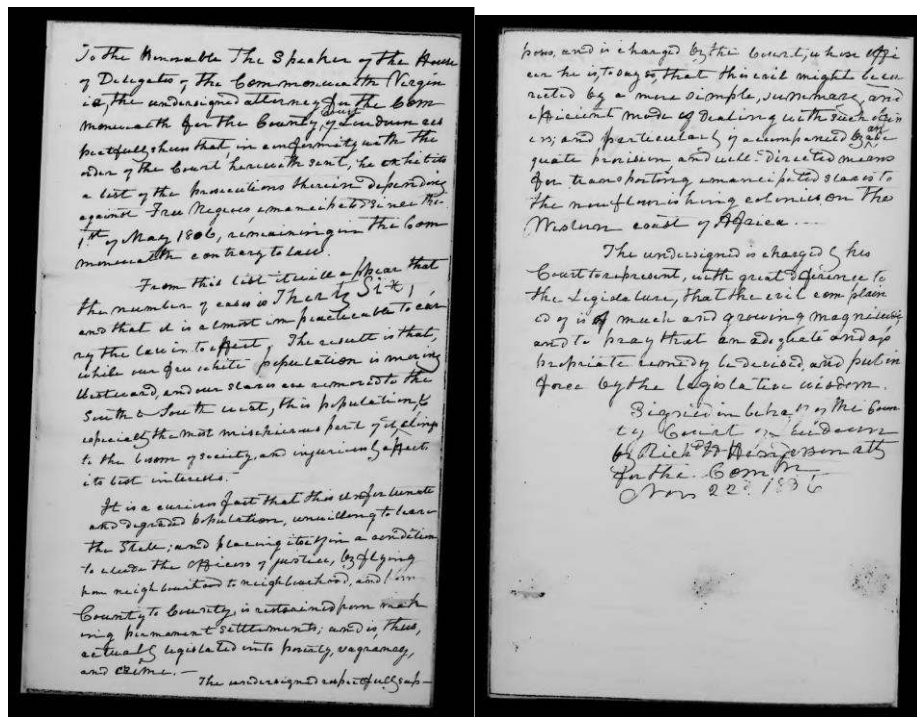 To the Honorable The Speaker of the House
of Delegates of the Commonwealth Virgin
ia, the undersigned attorney for the Com
monwealth for the County Court of Loudoun res
pectfully shews that in conformity with the
order of the Court herewith sent, he exhibits
a list of the prosecutions therein depending
against Free Negroes, emancipated since the
1st of May 1806, remaining in the Com
monwealth contrary to law.
From this list it will appear that
the number of cases is Thirty Six,
and that it is almost impracticable to car
ry the law into effect. The result is that,
while our free white population is moving
Westward, and our slaves are removed to the
South & South west, this population, &
especially the most mischievous part of it, clings
to the bosom of society, and injuriously affects
its best interests.
It is a curious fact that this unfortunate
and degraded population, unwilling to leave
the State; and placing itself in a condition
to elude the officers of justice, by flying
from neighbourhood to neighbourhood, and from
County to County, is restrained from mak
ing permanent settlements; and is, thus,
actually legislated into poverty, vagrancy,
and crime. —
The undersigned respectfully sup—
poses, and is charged by the Court, whose offi
cer he is, to say so, that this evil might be cor
rected by a more simple, summary, and
efficient mode of dealing with such
and particularly if accompanied by an ade
quate provision and well-directed means
for transporting emancipated slaves to
the now flourishing colonies on the
Western coast of Africa ...
The undersigned is charged by his
Court to represent, with great deference to
the Legislature, that the evil complain
ed of is of much and growing magnitude
and to pray that an adequate and ap
propriate remedy be devised, and put in
force by the legislative wisdom.
Signed in behalf of the Coun
ty Court of Loudoun
by Richd H Henderson atty
for the Comm
Nov 22d 1836